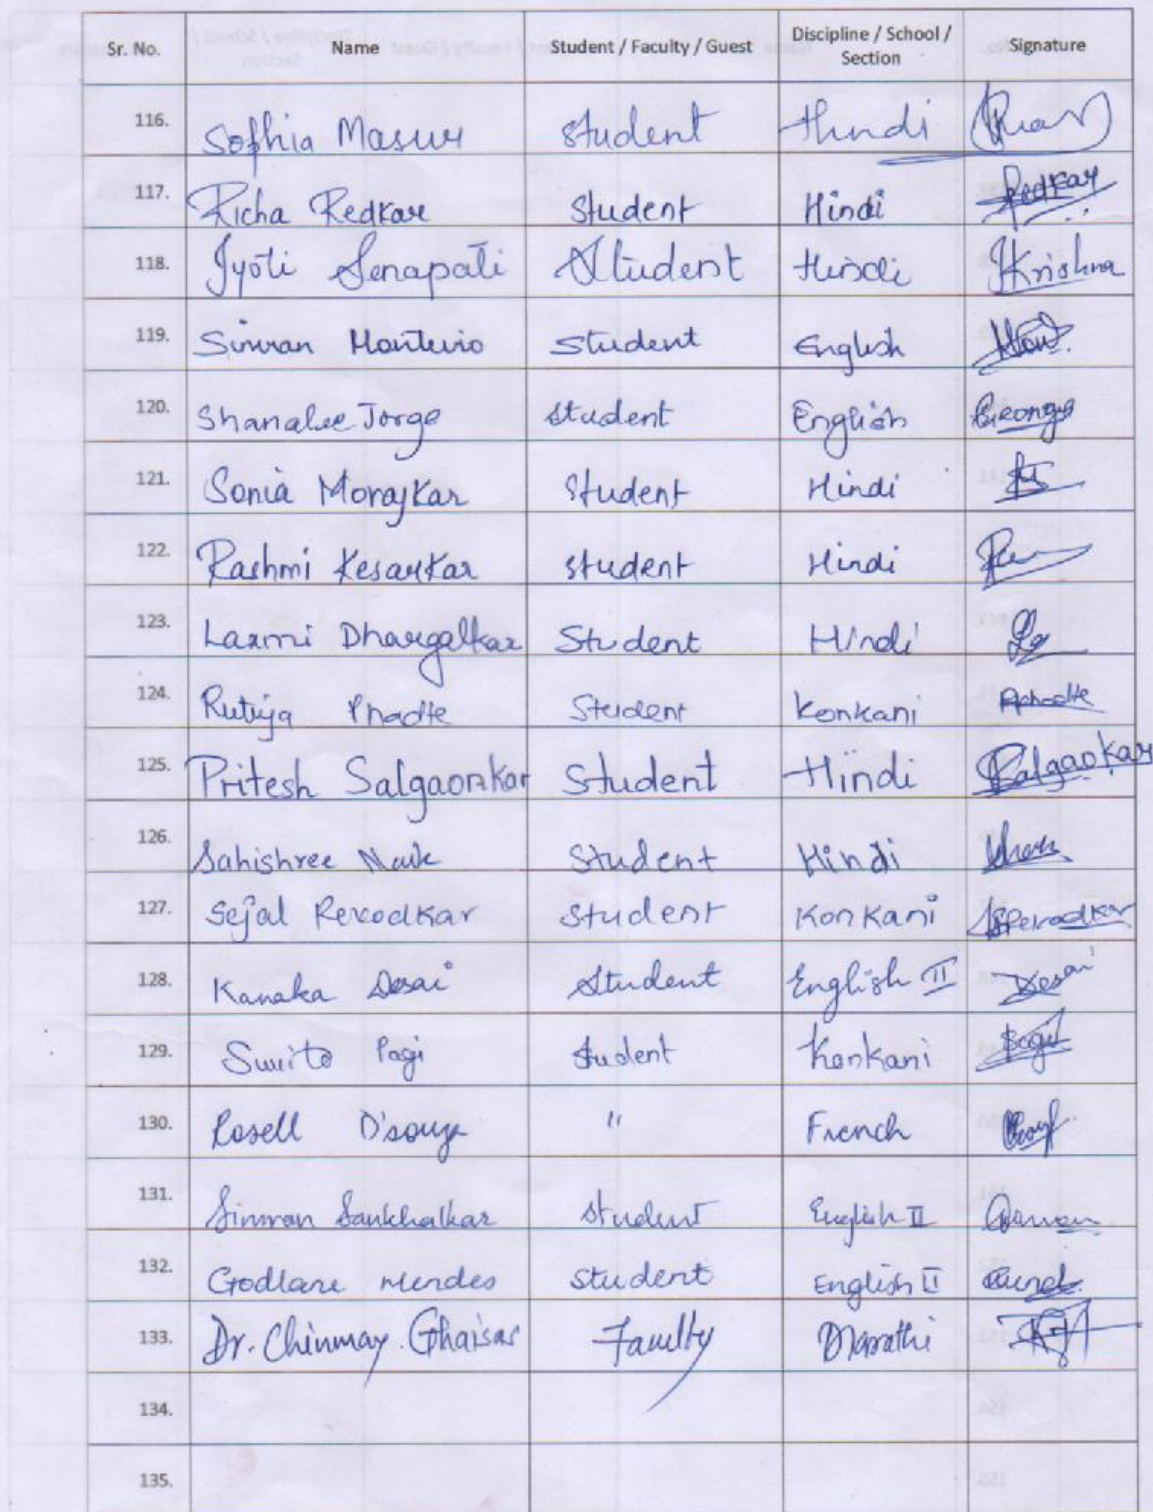 Sr. No. Name Student / Faculty / Guest Discipline / School / Section Signature
116. Sophia Masur Student Hindi
117. Richa Redkar Student Hindi Redkar
118. Jyoti Senapati Student Hindi JKrishna
119. Simran Monteiro Student English
120. Shanalee Jorge Student English
121. Sonia Morajkar Student Hindi
122. Rashmi Kesarkar Student Hindi
123. Laxmi Dhargalkar Student Hindi
124. Rutuja Phadte Student Konkani
125. Pritesh Salgaonkar Student Hindi Salgaokar
126. Sahishree Naik Student Hindi
127. Sejal Revodkar Student Konkani
128. Kanaka Desai Student English II Desai
129. Sunita Pagi Student Konkani
130. Rosell D'souza " French
131. Simran Sankhalkar Student English II
132. Godlane Mendes Student English II
133. Dr. Chinmay Ghaisas Faculty Marathi
134.
135.